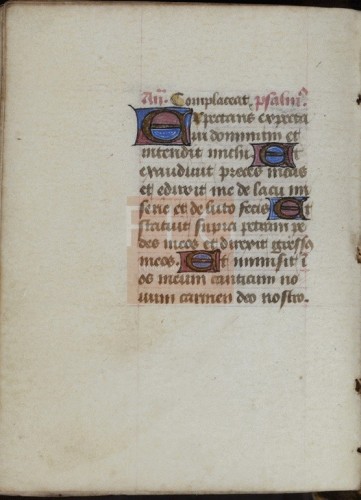 Añ. Complaceat. psalm̃.
Expectans expecta
ui dominum et
intendit michi. Et
exaudiuit preces meas
et eduxit me de lacu mi
serie et de luto fecis. Et
statuit supra petram pe
des meos et direxit gressꝯ
meos. Et immisit ĩ
os meum canticum no
uum carmen deo nostro.